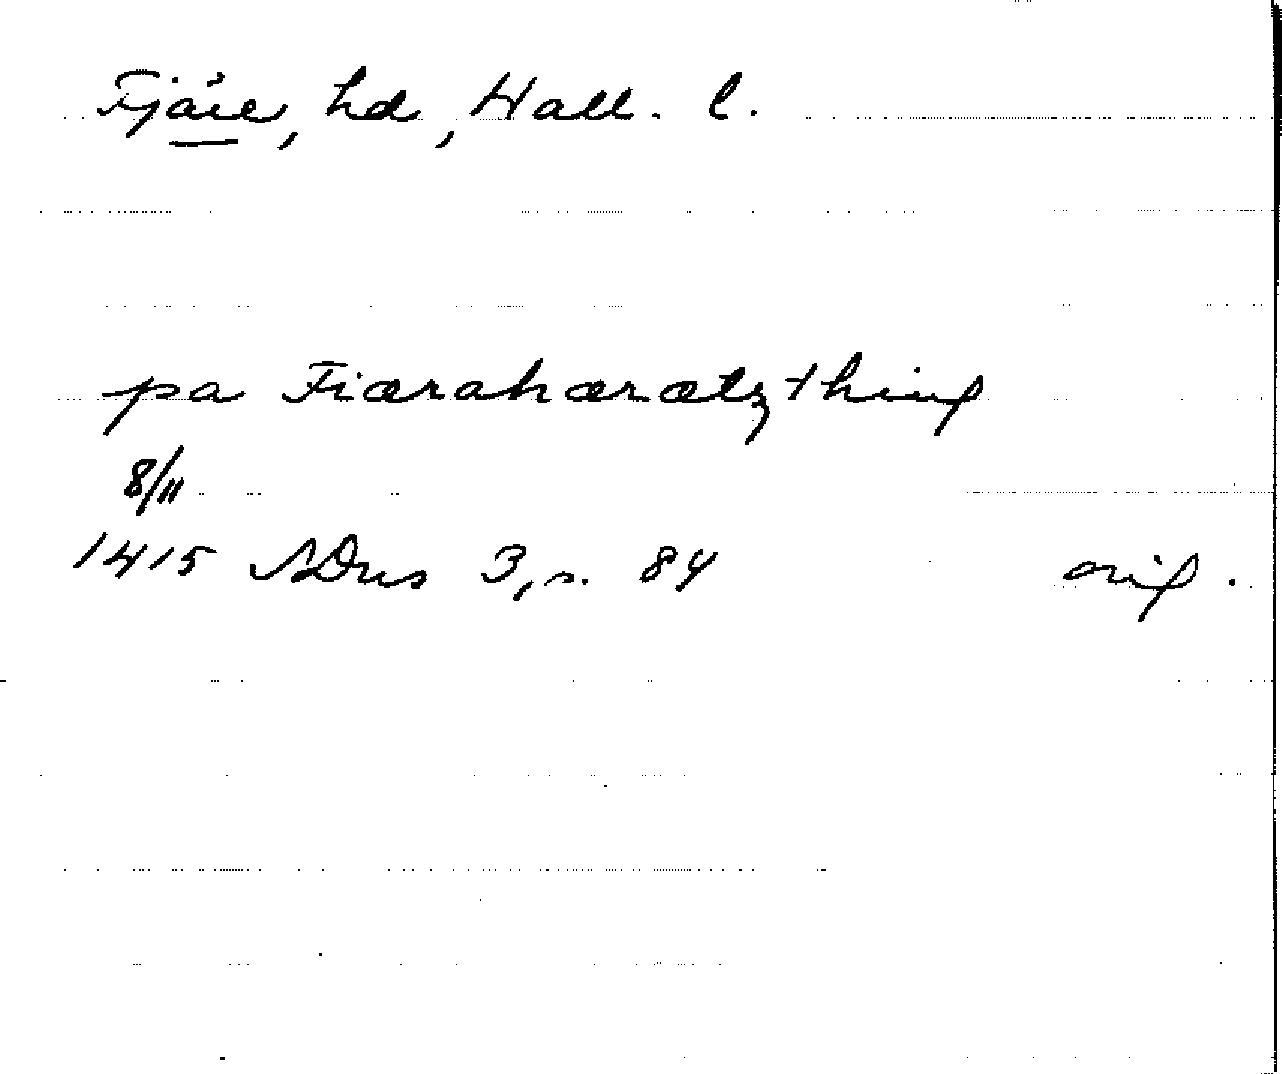 Fjäre, hd, Hall. l.
pa Fiærahæretz thing
8/11
1415 SDns 3, s. 84 orig.